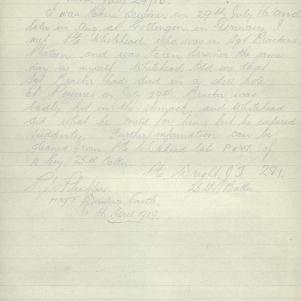 July 29/16.
I was taken prisoner on 29th July 16 and
later in Aug. at Gottingen in Germany
met Pte Whitehead, who was in Sgt
Platoon and was taken prisoner the same
day as myself. Whitehead told me that
Sgt had died in a shell hole
at Pozieres on July 29th. was
badly hit in the stomach and Whitehead
did what he could for him but he expired
suddenly. Further information can be
gleaned from Pte Whitehead late P of W. of
A Coy, 28th Battn.
Pte Wright, J.J. 281,
28th Battn
South
4th April 1919.